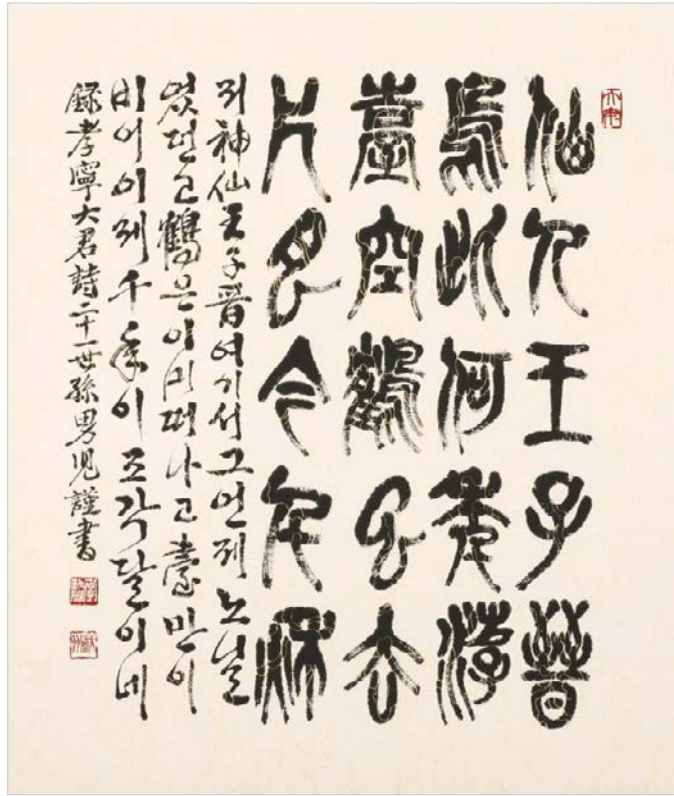 仙人王子晉
於此何年游
臺空鶴已去
片月今千秋
저神仙王子晉여기서그언제노닐
었던고鶴은이미떠나고臺만이
비어이제千年이조각달이네
錄孝寧大君詩二十一世孫男児謹書